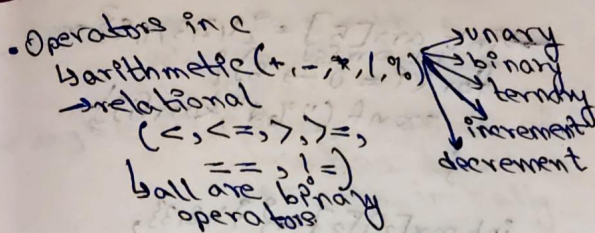 • Operators in c
↳ arithmetic (+, -, *, /, %)
→ unary
→ binary
→ ternary
increment
decrement
→ relational
(<, <=, >, >=,
==, !=)
↳ all are binary
operators